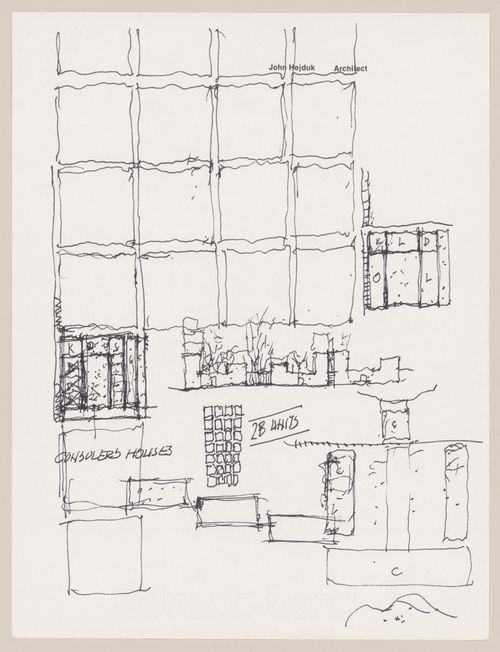 John Hejduk Architect
K L D
O L
K D S
28 UNITS
CONSOLERS HOUSES
C